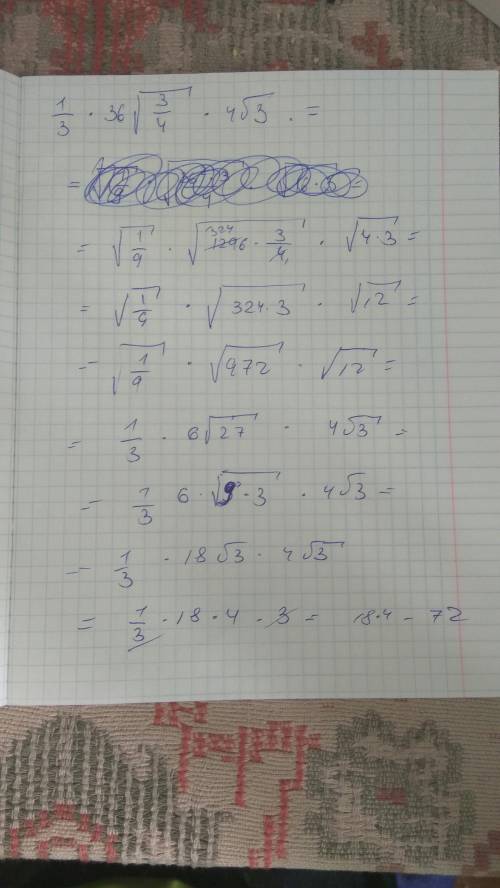 1/3 · 36√(3/4) · 4√3 . =
=
= √(1/9) · √(324 1296 · 3/4) · √(4·3) =
= √(1/9) · √(324·3) · √12 =
= √(1/9) · √972 · √12 =
= 1/3 · 6√27 · 4√3 =
= 1/3 6 · √(9·3) · 4√3 =
= 1/3 · 18√3 · 4√3
= 1/3 · 18 · 4 · 3 = 18·4 = 72